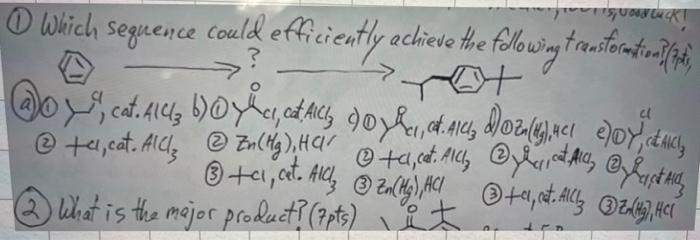 Good luck!
① Which sequence could efficiently achieve the following transformation? (7pts)
?
ⓐ ① Cl, cat. AlCl₃ b) ① O Cl, cat. AlCl₃ c) ① O Cl, cat. AlCl₃ d) ① Zn(Hg), HCl e) ① Cl, cat. AlCl₃
② +Cl, cat. AlCl₃ ② Zn(Hg), HCl ② +Cl, cat. AlCl₃ ② O Cl, cat. AlCl₃ ② O Cl, cat. AlCl₃
③ +Cl, cat. AlCl₃ ③ Zn(Hg), HCl ③ +Cl, cat. AlCl₃ ③ Zn(Hg), HCl
② What is the major product? (7pts) O